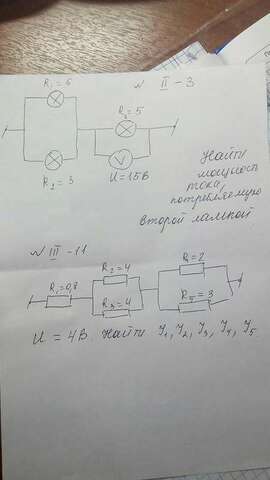 R₁=6
N II-3
R₃=5
R₂=3
U=15В
Найти
мощность
тока,
потребляемую
второй лампой
N III-11
R₁=0,8
R₂=4
R₃=4
R₄=2
R₅=3
U = 4В. Найти I₁, I₂, I₃, I₄, I₅.